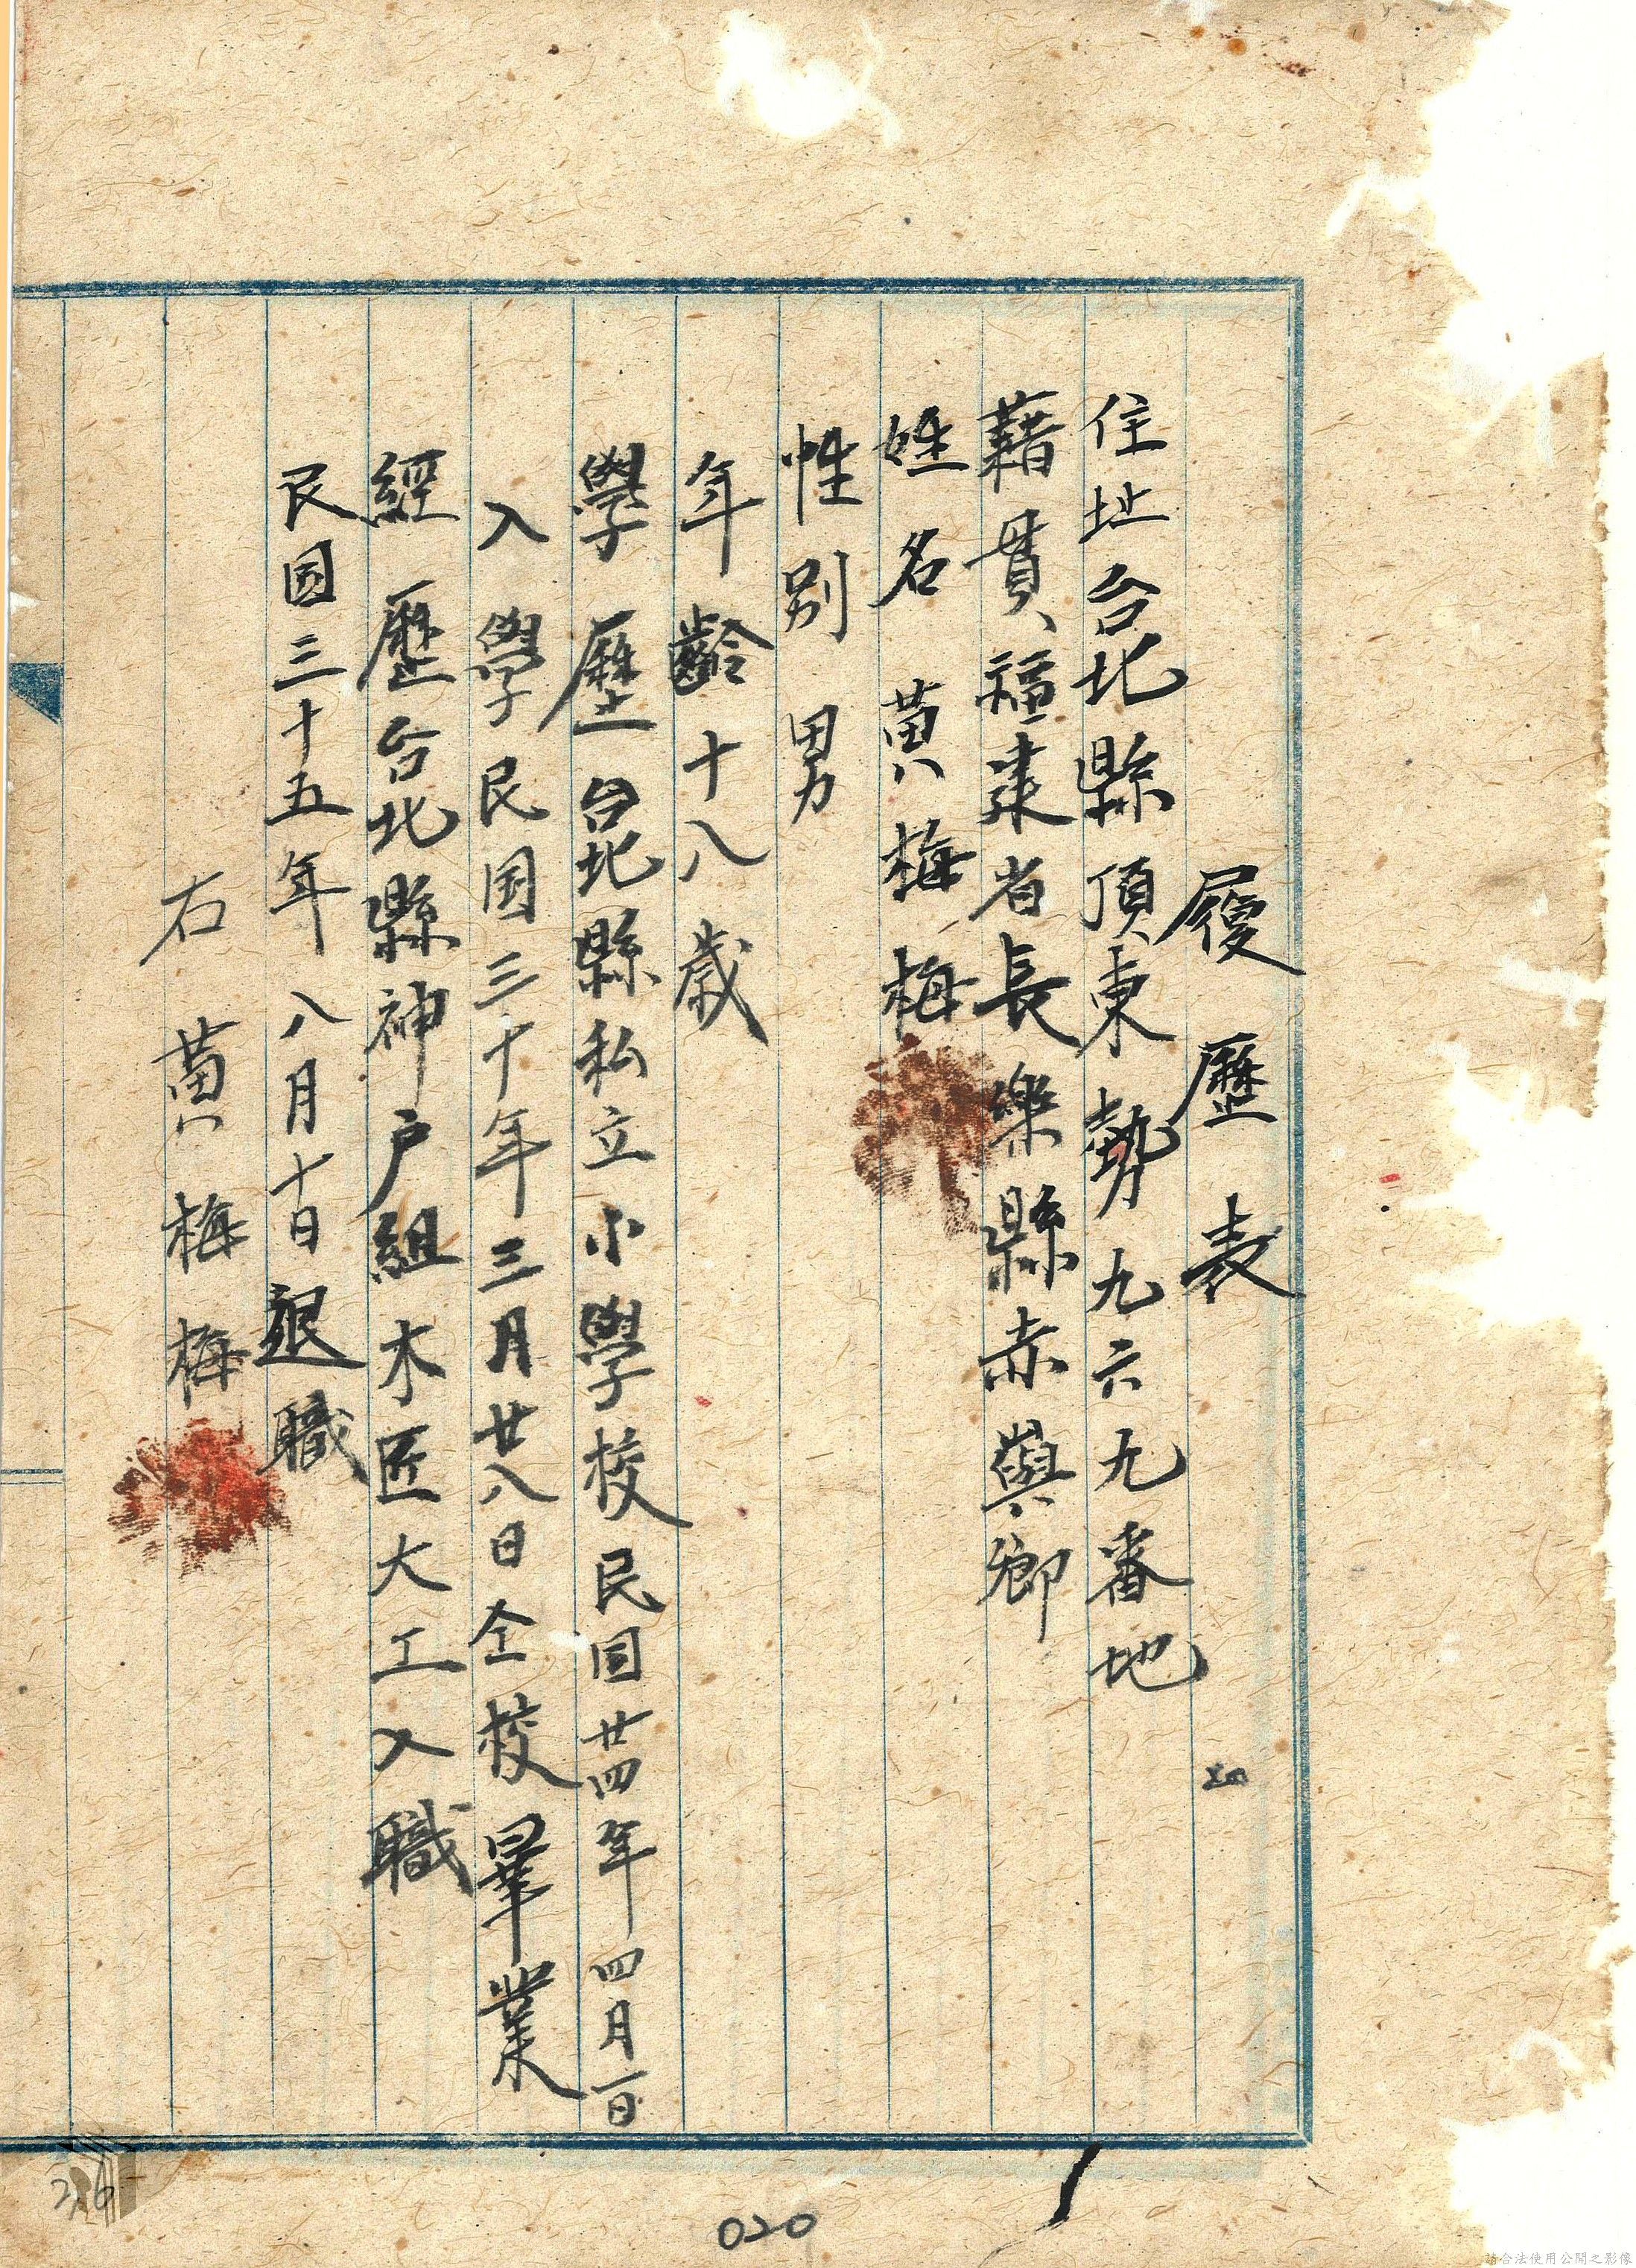 履歷表
住址台北縣頂東勢九六九番地
藉貫福建省長樂縣赤與鄉
姓名黃梅梅
性別男
年齡十八歲
學歷台北縣私立小學校民国廿四年四月一日
入學民国三十年三月廿八日仝校畢業
經歷台北縣神户組木匠大工入職
民国三十五年八月十日退職
右黃梅梅
020
26